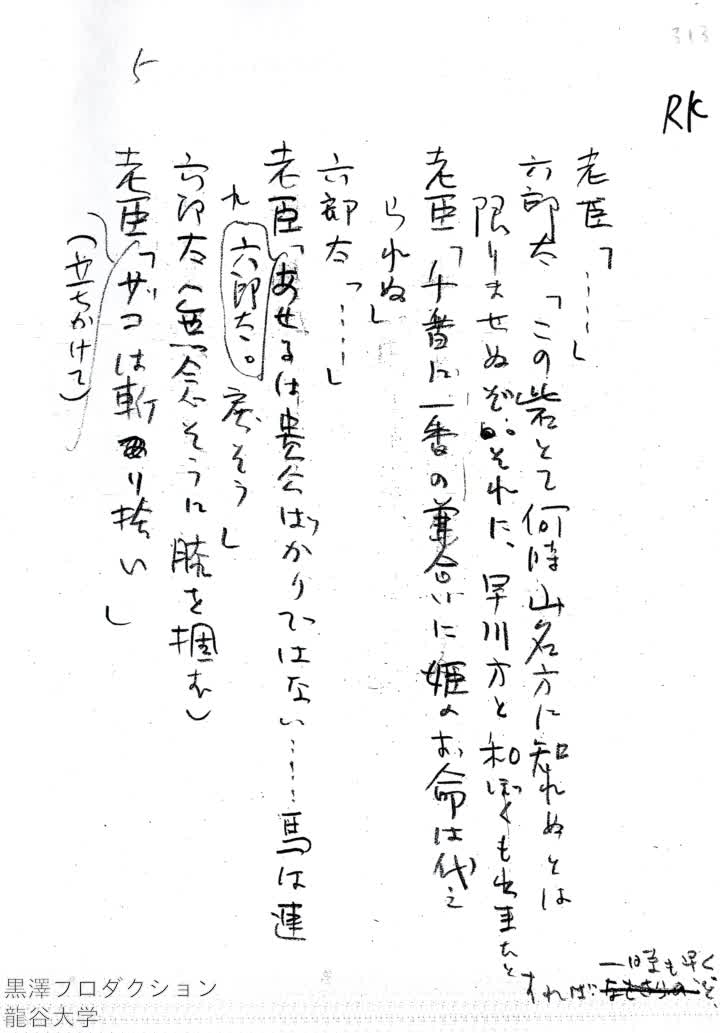 313
RK
5
老臣「……」
六郎太「この砦とて何時山名方に知れぬとは
限りませぬぞ。それに、早川方と和ぼくも出来たと
すれば一時も早く
老臣「千番に一番の兼合いに姫のお命は代え
られぬ」
六郎太「……」
老臣「あせるは貴公ばかりではない……馬は連
れ
六郎太。
戻そう」
六郎太（無念そうに膝を掴む）
老臣「ザコは斬り捨い」
（立ちかけて）
黒澤プロダクション
龍谷大学